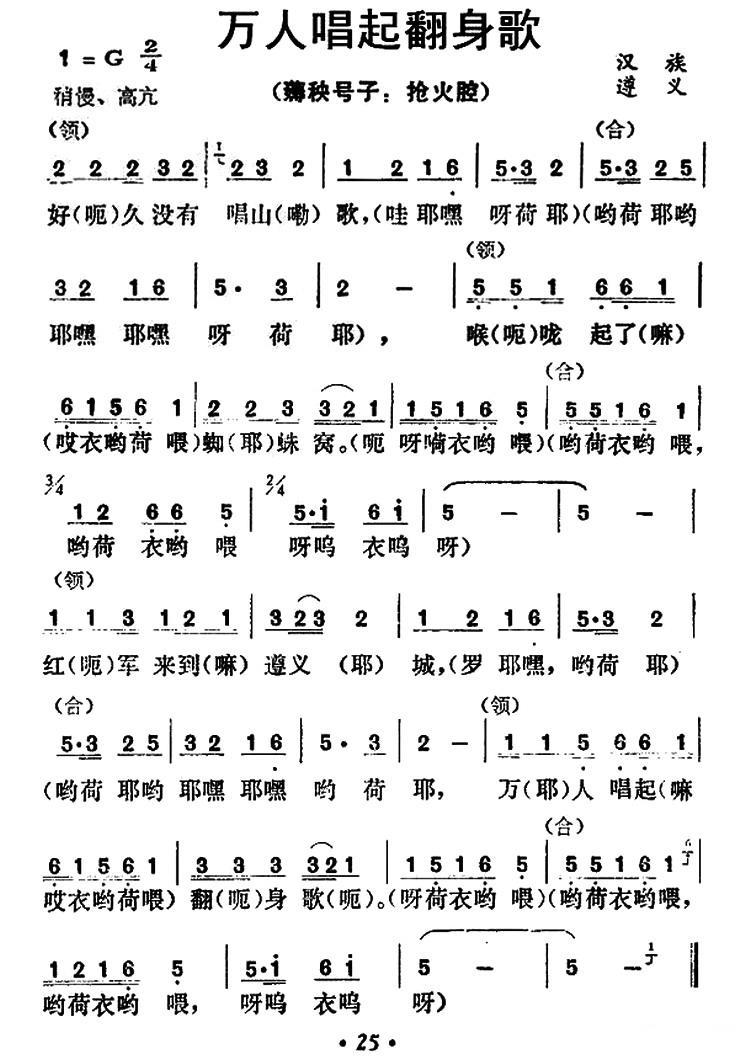 万人唱起翻身歌
1 = G 2/4
汉 族
稍慢、高亢
(薅秧号子：抢火腔)
遵 义
(领) (合)
2 2 2 3 2 | 2 3 2 | 1 2 1 6 | 5·3 2 | 5·3 2 5 |
好(呃)久没有 唱山(嘞) 歌，(哇耶嘿 呀荷耶)(哟荷耶哟
(领)
3 2 1 6 | 5· 3 | 2 － | 5 5 1 6 6 1 |
耶嘿 耶嘿 呀 荷 耶)， 喉(呃)咙 起了(嘛)
(合)
6 1 5 6 1 | 2 2 3 3 2 1 | 1 5 1 6 5 | 5 5 1 6 1 |
(哎衣哟荷 喂)蜘(耶)蛛 窝。(呃 呀嗬衣哟 喂)(哟荷衣哟 喂，
3/4 1 2 6 6 5 | 2/4 5·i 6 i | 5 － | 5 － |
哟荷 衣哟 喂 呀呜 衣呜 呀)
(领)
1 1 3 1 2 1 | 3 2 3 2 | 1 2 1 6 | 5·3 2 |
红(呃)军 来到(嘛) 遵义 (耶) 城，(罗 耶嘿， 哟荷 耶)
(合) (领)
5·3 2 5 | 3 2 1 6 | 5· 3 | 2 － | 1 1 5 6 6 1 |
(哟荷 耶哟 耶嘿 耶嘿 哟 荷 耶， 万(耶)人 唱起(嘛
(合)
6 1 5 6 1 | 3 3 3 3 2 1 | 1 5 1 6 5 | 5 5 1 6 1 |
哎衣哟荷喂) 翻(呃)身 歌(呃)。(呀荷衣哟 喂)(哟荷衣哟喂，
1 2 1 6 5 | 5·i 6 i | 5 － | 5 － ‖
哟荷衣哟 喂， 呀呜 衣呜 呀)
· 25 ·